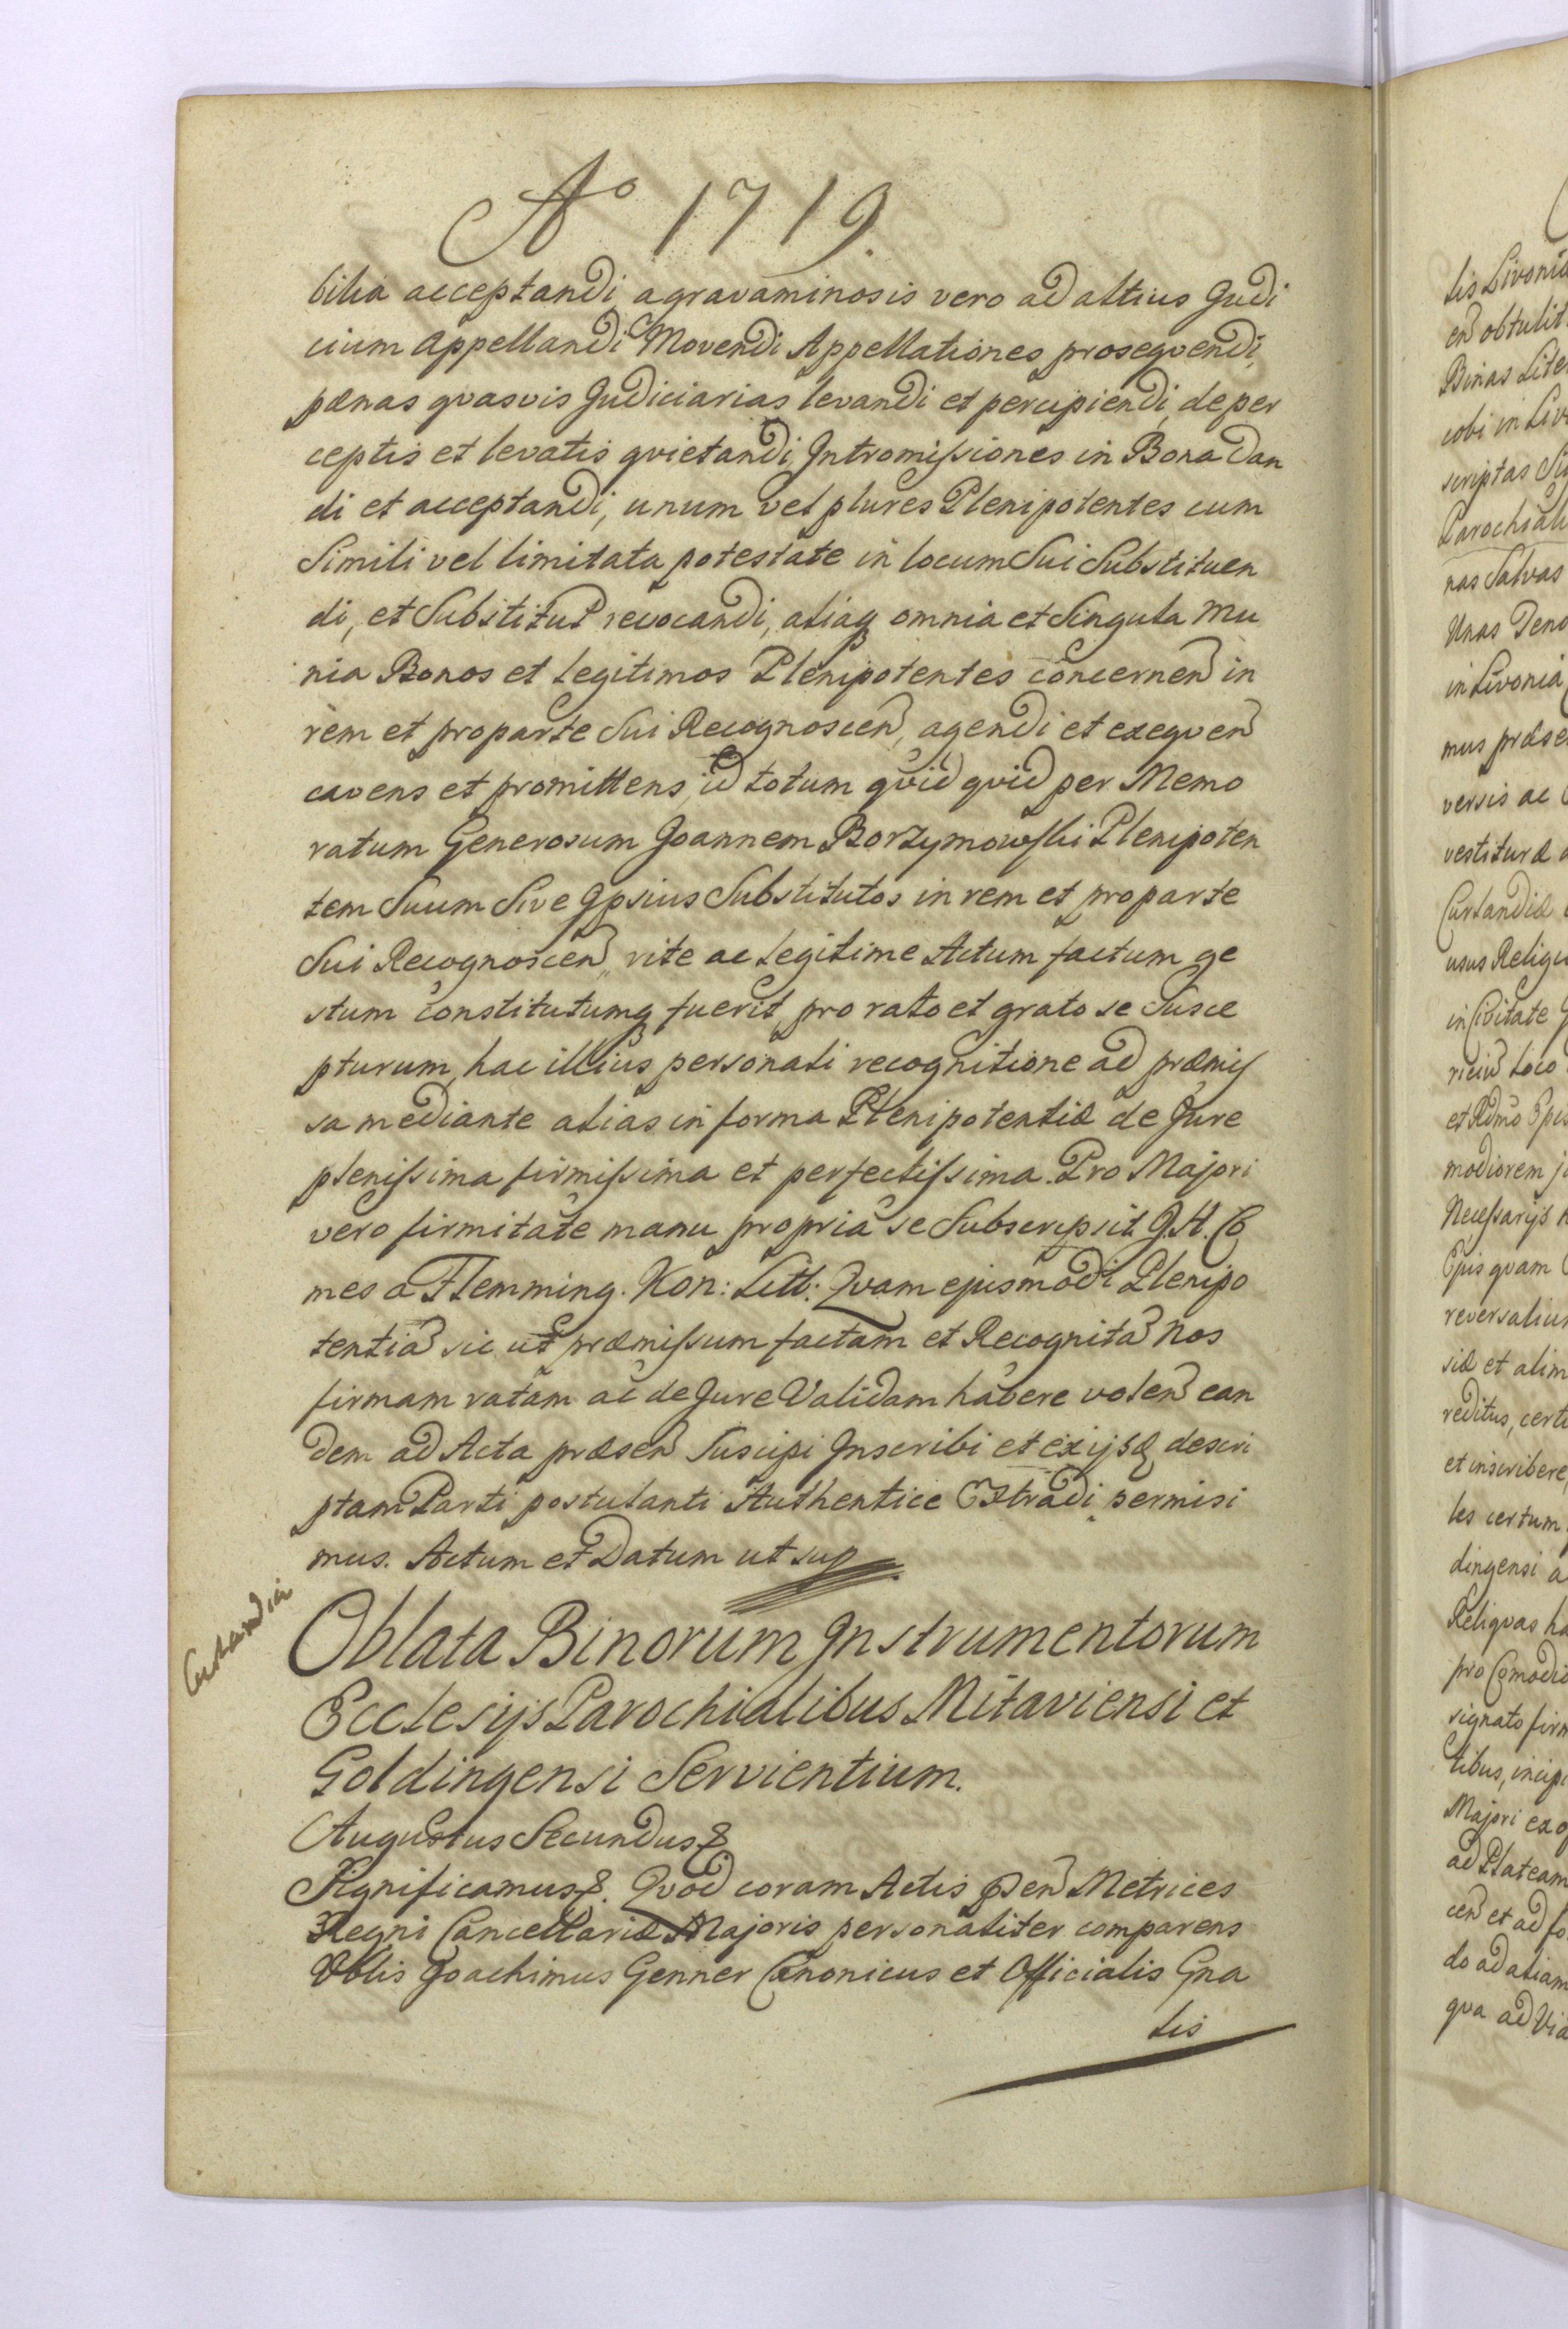 Aº 1719.
bilia acceptandi, agravaminosis vero ad altius Judi
cium appellandi Movendi Appellationes proseqvendi,
pænas qvasvis Judiciarias levandi et percipiendi, de per
ceptis et levatis qvietandi, Intromissiones in Bona Dan
di et acceptandi, unum vel plures Plenipotentes cum
Simili vel limitata potestate in locum Sui Substituen
di, et Substitut revocandi, aliaq omnia et Singula Mu
nia Bonos et Legitimos Plenipotentes concernen in
rem et pro parte Sui Recognoscen, agendi et exeqven
cavens et promittens, id totum qvid qvid per Memo
ratum Generosum Joannem Borzymowski Plenipoten
tem Suum Sive Ipsius Substitutos in rem et pro parte
Sui Recognoscen, rite ac Legitime Actum factum ge
stum constitutumq fuerit, pro rato et grato se Susce
pturum, hac illius personali recognitione ad præmis
sa mediante alias in forma Plenipotentiæ de Jure
plenissima firmissima et perfectissima. Pro Majori
vero firmitate manu propria se Subscripsit. J. H. Co
mes a Flemming. Kon: Litt: Qvam ejusmodi Plenipo
tentia sic ut præmissum factam et Recognita Nos
firmam ratam ac de Jure Validam habere volen ean
dem ad Acta præsen Suscipi Inscribi et ex ijsd descri
ptam Parti postulanti Authentice Extradi permisi
mus. Actum et Datum ut sup
Curlandia
Oblata Binorum Instrumentorum
Ecclesijs Parochialibus Mitaviensi et
Goldingensi Servientium.
Augustus Secundus &
Significamus &. Qvod coram Actis psen Metrices
Regni Cancellariæ Majoris personaliter comparens
Vblis Joachimus Genner Canonicus et Officialis Gna
lis
lis Livonia
en obtulit
Binas Lite
cobi in Liv
scriptas Si
Parochiali
nas Salvas
Unas Teno
in Livonia
mus præse
versis ac
vestituræ
Curlandiæ
usus Religi
in Civitate
loco
modiorem
Necessarijs
Ejus qvam
reversaliu
siæ et alim
reditus, cert
et inscribere
les certum
dingensi a
Reliqvas ha
pro Comodi
signato firm
tibus, incip
Majori ex
ad Plateam
cen et ad fo
do ad aliam
qva ad Via